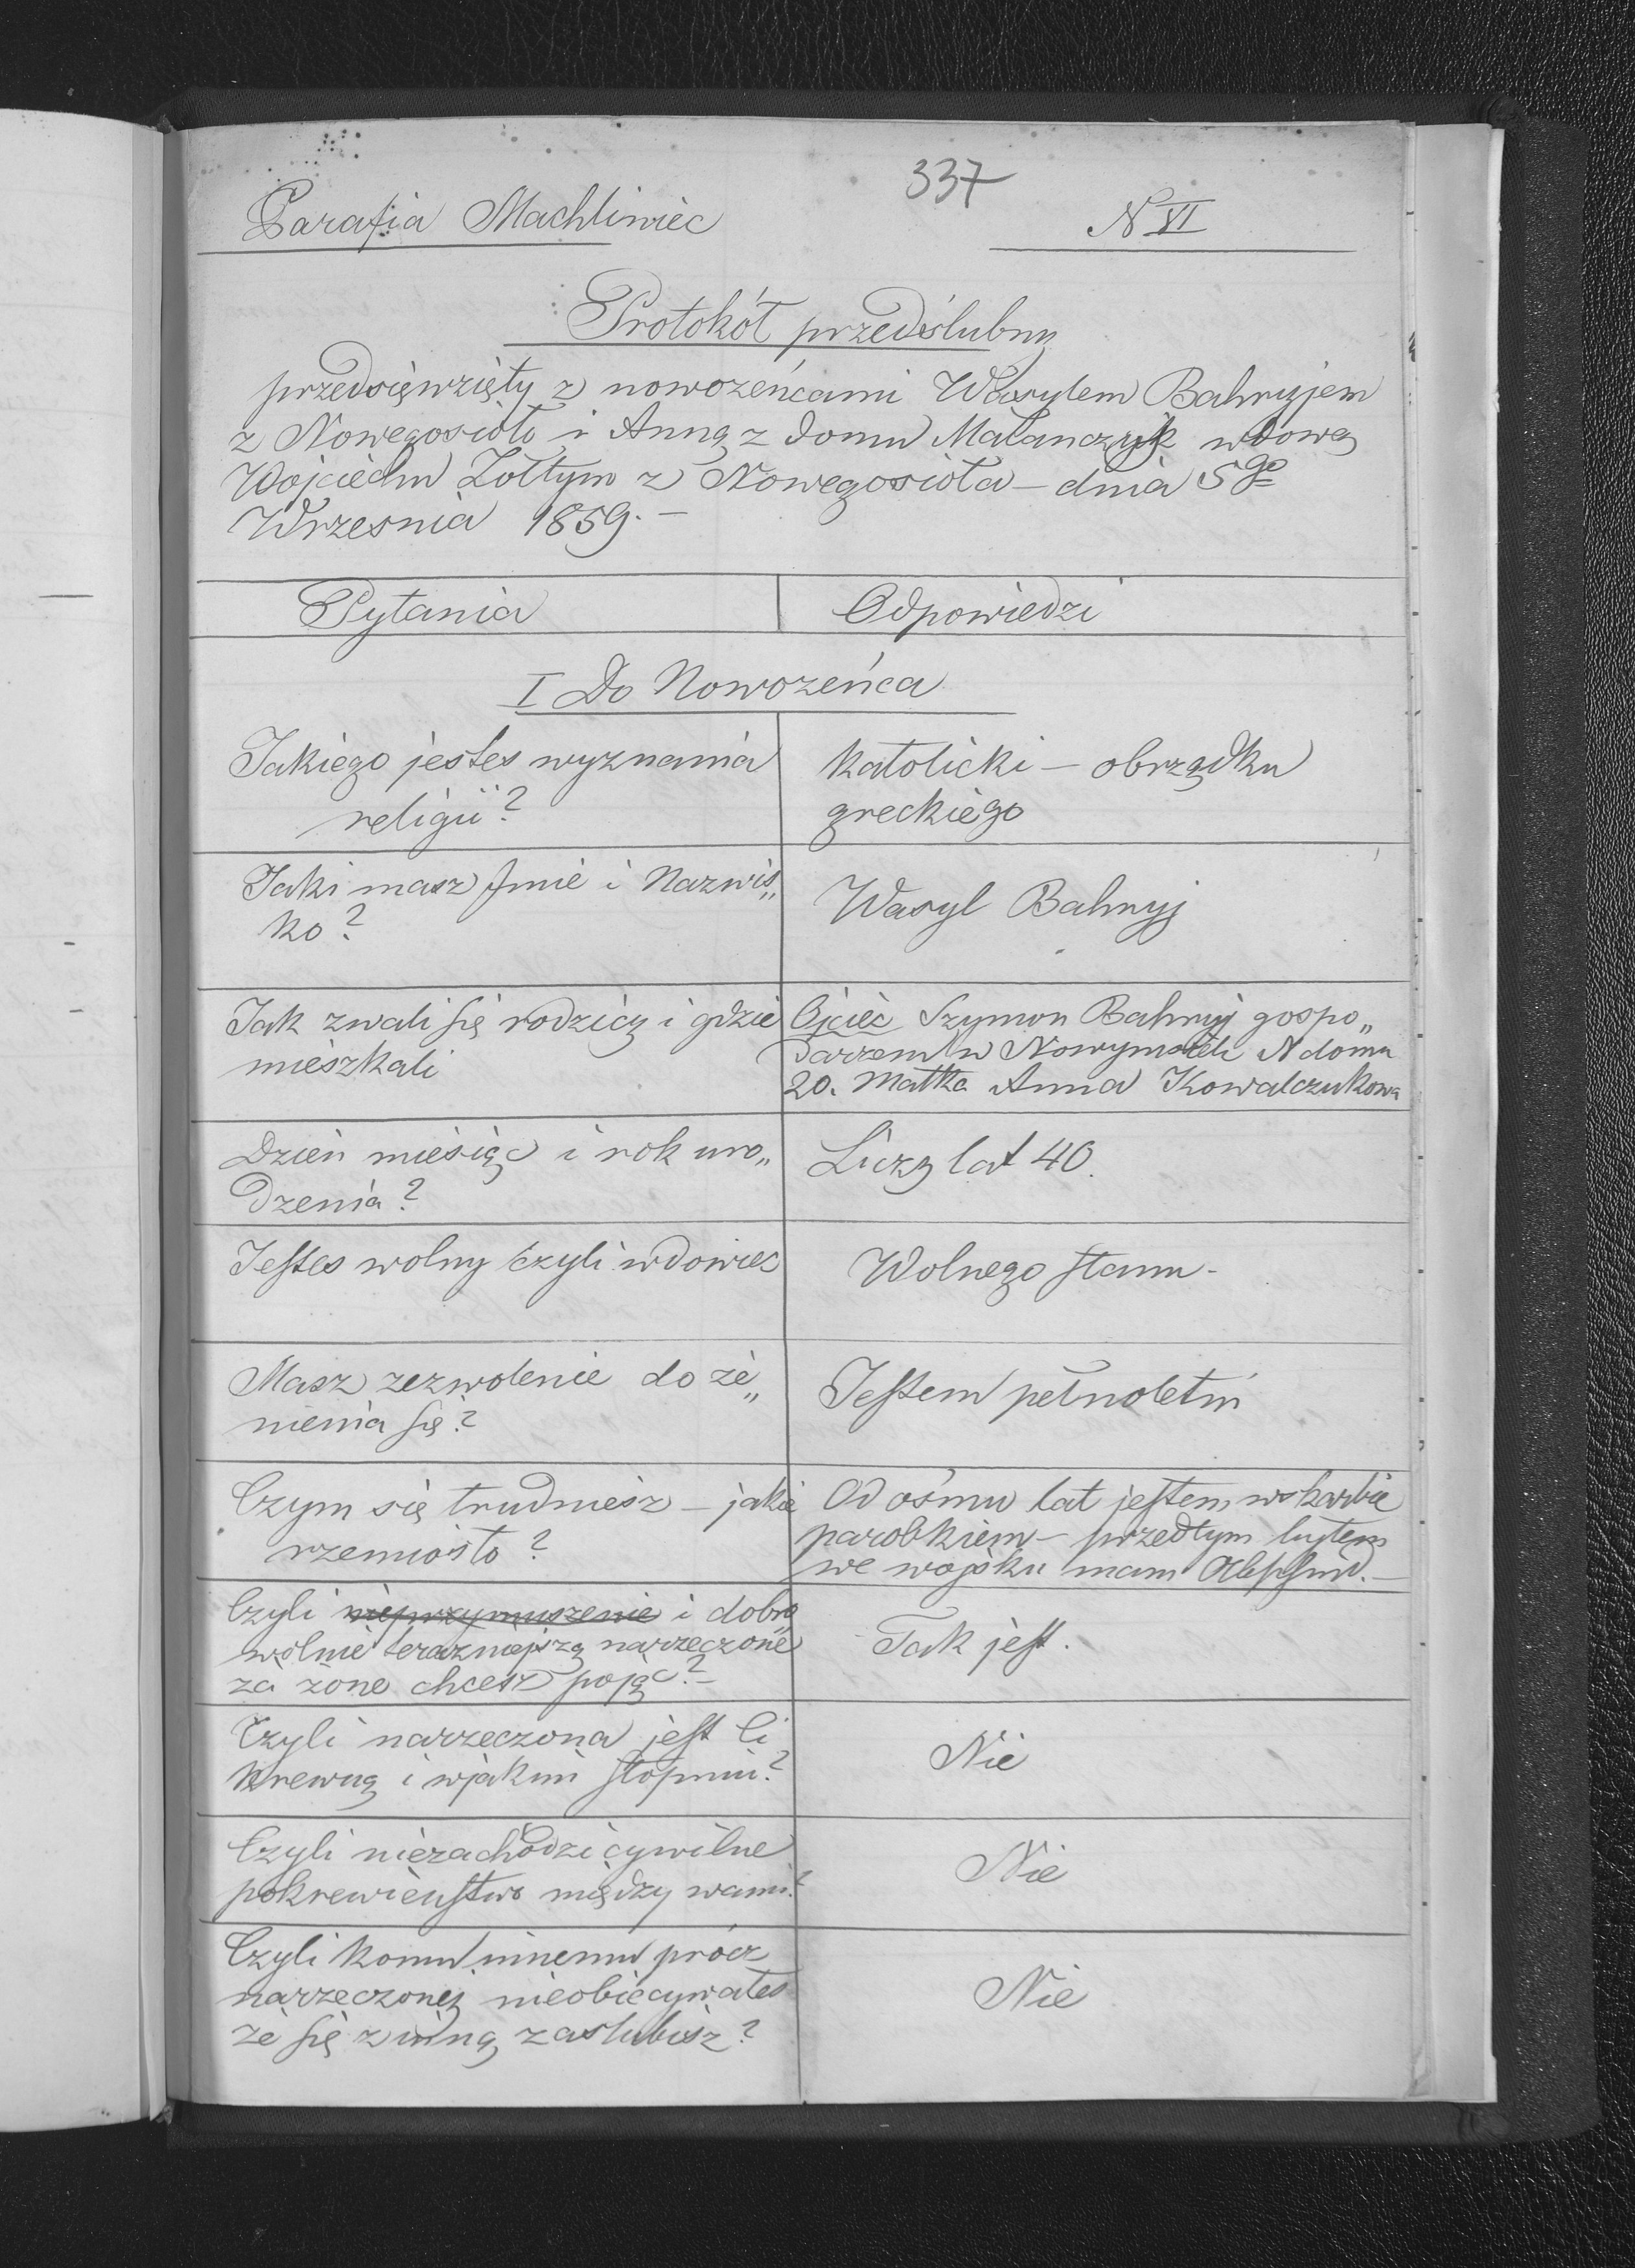 337
Parafia Machliniec
N VI
Protokół przedślubny
przedsięwzięty z nowożeńcami Wasylem Bahryjem
z Nowegosioło i Anną z domu Małanczyk wdową
Wojciechu Żołtym z Nowegosioła – dnia 5go
Wrzesnia 1859. –
Pytania
Odpowiedzi
I Do Nowożeńca
Jakiego jestes wyznania
religii?
katolicki – obrządku
greckiego
Jaki masz Imie i Nazwis„
ko?
Wasyl Bahryj
Jak zwali się rodzicy i gdzie
mieszkali
Ojciec Szymon Bahryj gospo„
darzem w Nowymsiele N domu
20. Matka Anna Kowalczukowa
Dzień miesiąc i rok uro„
dzenia?
Liczy lat 40.
Jestes wolny czyli wdowiec
Wolnego stanu –
Masz zezwolenie do że„
nienia się?
Jestem pełnoletni
Czym się trudniesz – jakie
rzemiosło?
Od ośmu lat jestem w skarbie
parobkiem – przedtym byłem
we wojsku mam Abschid. –
Czyli nieprzymuszenie i dobro
wolnie terazniejszą narzeczone
za żone chcesz pojąc? –
Tak jest.
Czyli narzeczona jest Ci
krewną i wjakim stopniu?
Nie
Czyli niezachodzi cywilne
pokrewieństwo między wami?
Nie
Czyli komu innemu prócz
narzeczonej nieobiecywałes
że się z inną zaslubisz?
Nie